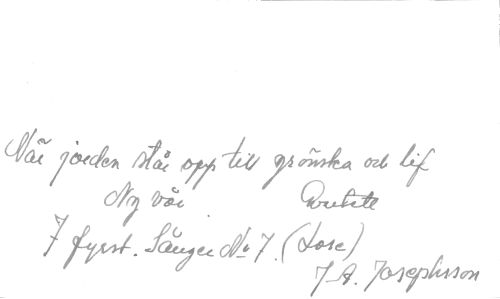 När jorden står opp till grönska och lif
Ny vår
7 fyrst. Sånger No 7. (Lose)
J. A. Josephsson